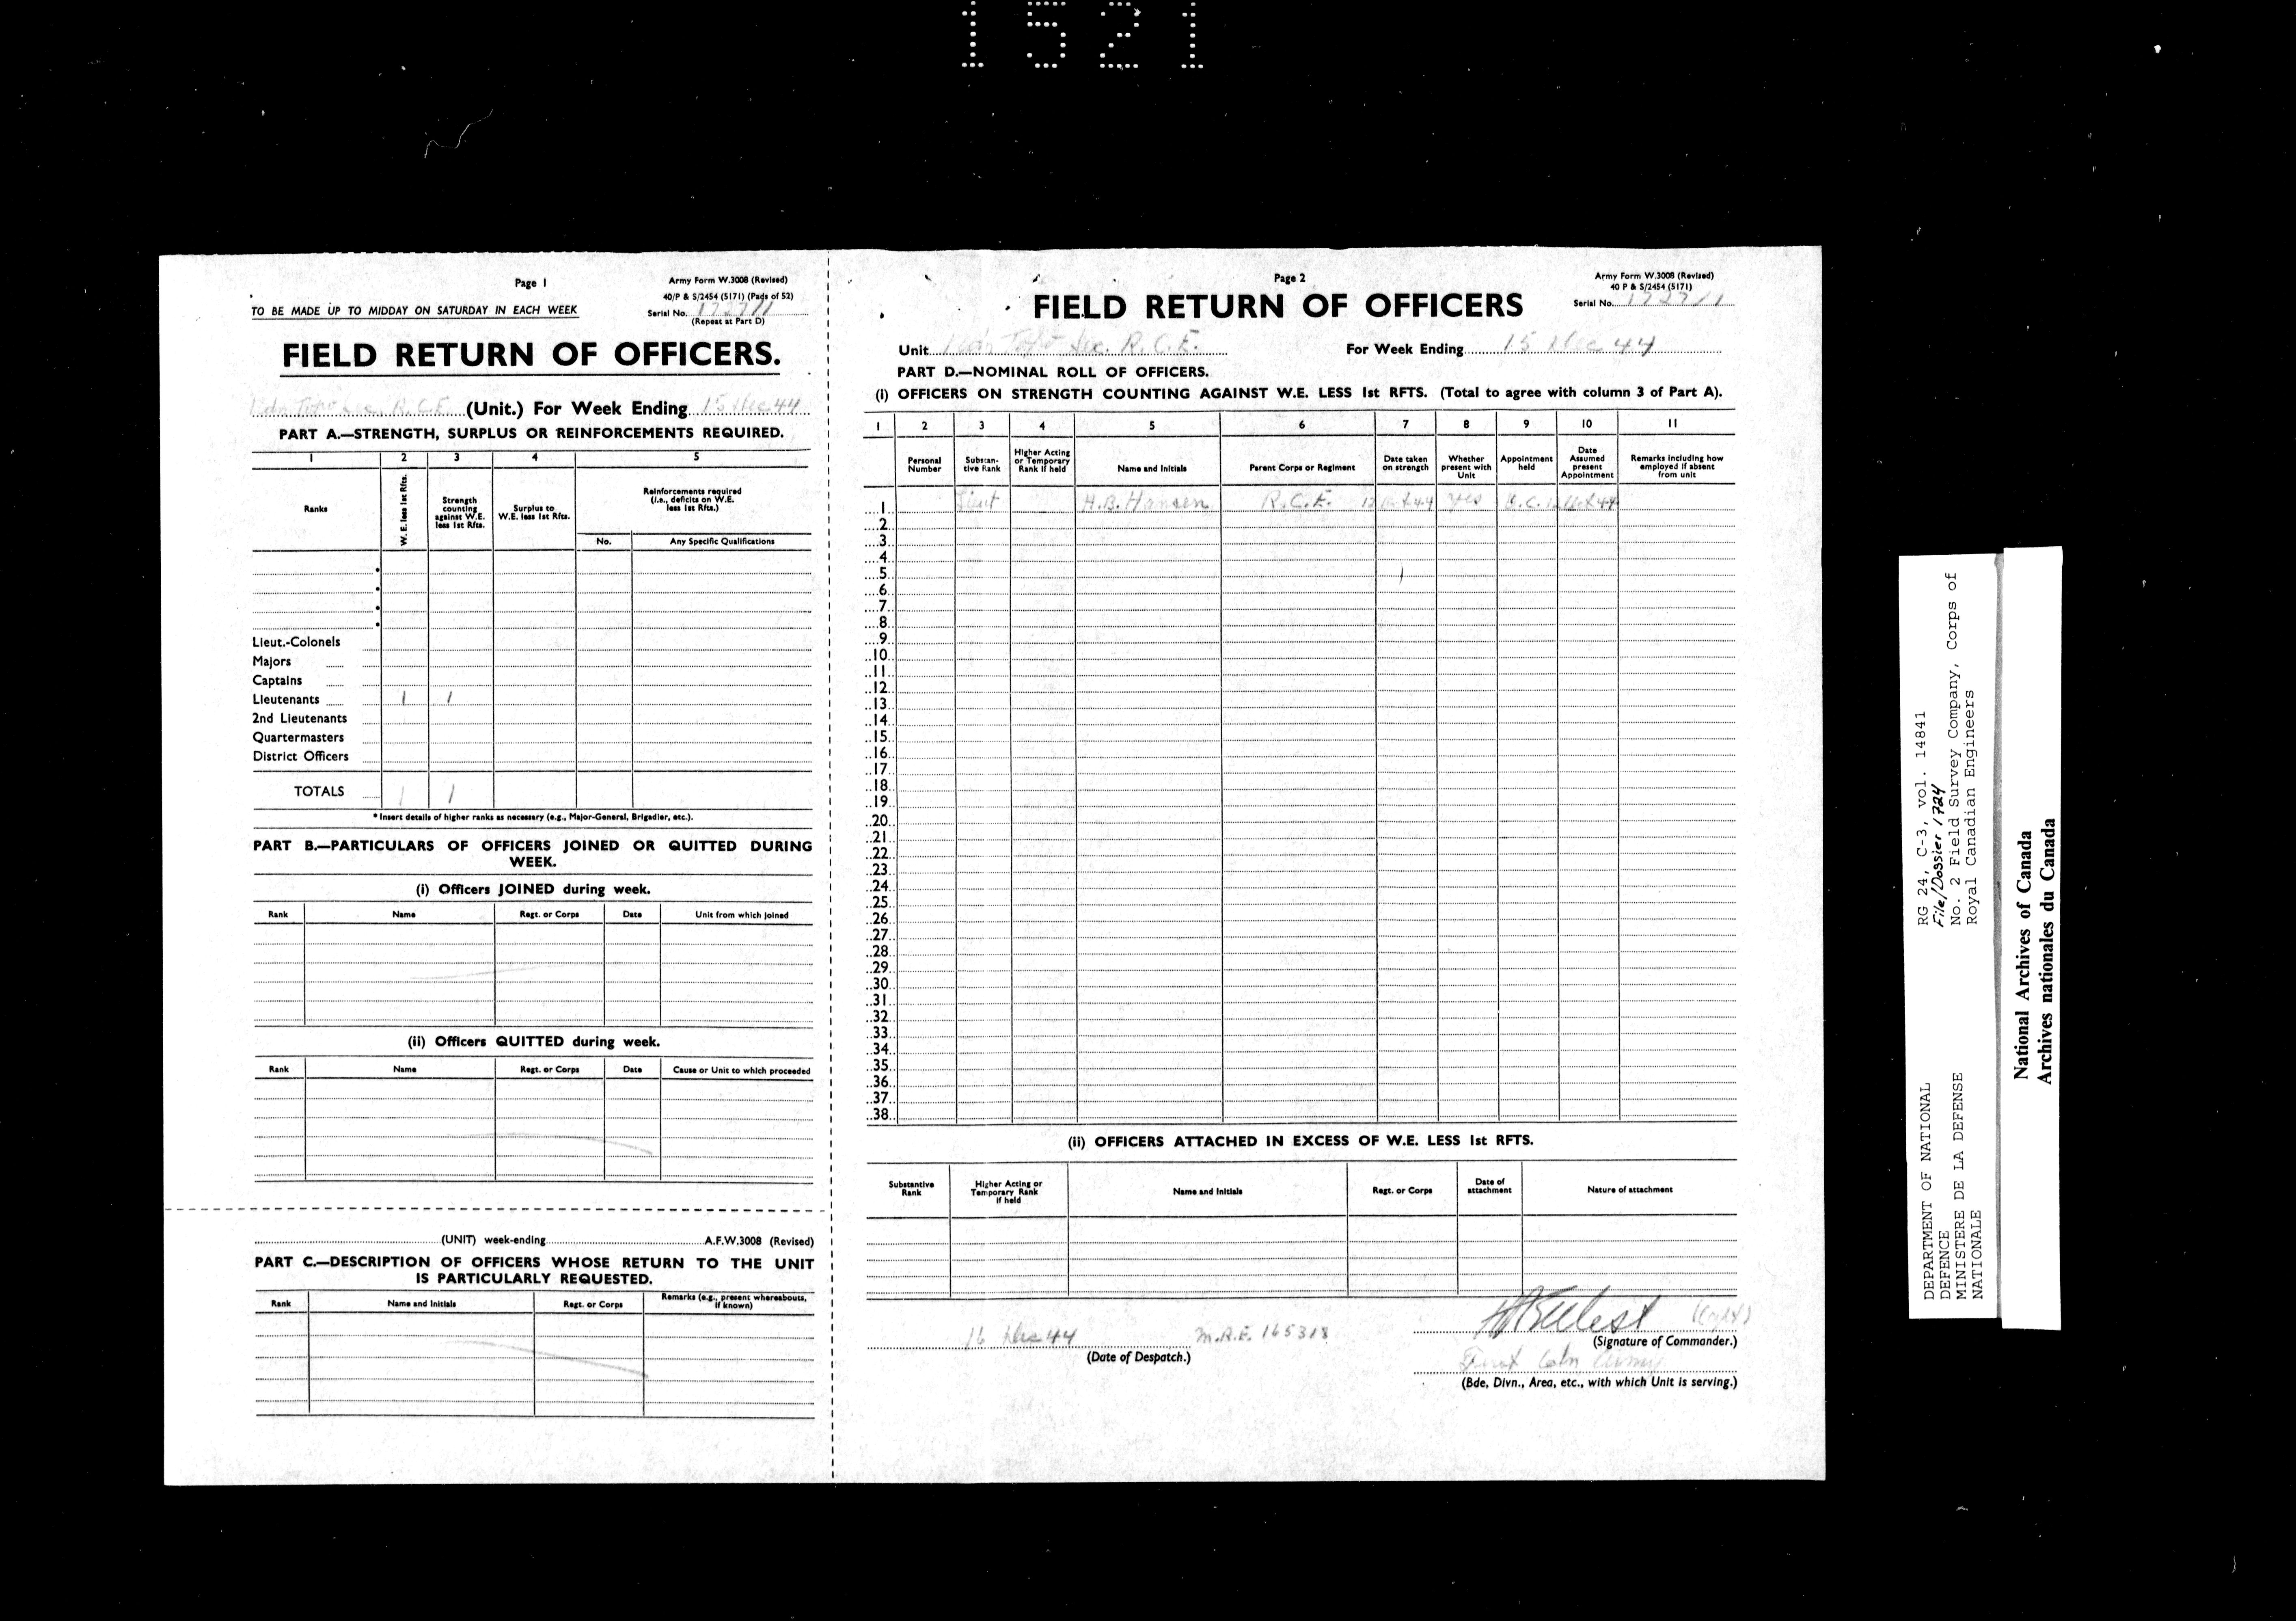 1521
Page 1
Army Form W.3008 (Revised)
40/P & S/2454 (5171) (Pads of 52)
TO BE MADE UP TO MIDDAY ON SATURDAY IN EACH WEEK
Serial No. 1727/1
(Repeat at Part D)
FIELD RETURN OF OFFICERS.
R.C.E. (Unit.) For Week Ending 15 Dec 44
PART A.—STRENGTH, SURPLUS OR REINFORCEMENTS REQUIRED.
1 2 3 4 5
Ranks
W. E. less 1st Rfts.
Strength counting against W.E. less 1st Rfts.
Surplus to W.E. less 1st Rfts.
Reinforcements required (i.e., deficits on W.E. less 1st Rfts.)
No. Any Specific Qualifications
Lieut.-Colonels
Majors
Captains
Lieutenants 1 1
2nd Lieutenants
Quartermasters
District Officers
TOTALS 1 1
* Insert details of higher ranks as necessary (e.g., Major-General, Brigadier, etc.).
PART B.—PARTICULARS OF OFFICERS JOINED OR QUITTED DURING
WEEK.
(i) Officers JOINED during week.
Rank Name Regt. or Corps Date Unit from which joined
(ii) Officers QUITTED during week.
Rank Name Regt. or Corps Date Cause or Unit to which proceeded
(UNIT) week-ending A.F.W.3008 (Revised)
PART C.—DESCRIPTION OF OFFICERS WHOSE RETURN TO THE UNIT
IS PARTICULARLY REQUESTED.
Rank Name and Initials Regt. or Corps Remarks (e.g., present whereabouts, if known)
Page 2
Army Form W.3008 (Revised)
40 P & S/2454 (5171)
FIELD RETURN OF OFFICERS
Serial No. 1727/1
Unit Sec. R.C.E. For Week Ending 15 Dec 44
PART D.—NOMINAL ROLL OF OFFICERS.
(i) OFFICERS ON STRENGTH COUNTING AGAINST W.E. LESS 1st RFTS. (Total to agree with column 3 of Part A).
1 2 3 4 5 6 7 8 9 10 11
Personal Number
Substantive Rank
Higher Acting or Temporary Rank if held
Name and Initials
Parent Corps or Regiment
Date taken on strength
Whether present with Unit
Appointment held
Date Assumed present Appointment
Remarks including how employed if absent from unit
1 Lieut H.B. Hansen R.C.E. 12 Oct 44 yes O.C. 12 Oct 44
2
3
4
5
6
7
8
9
10
11
12
13
14
15
16
17
18
19
20
21
22
23
24
25
26
27
28
29
30
31
32
33
34
35
36
37
38
(ii) OFFICERS ATTACHED IN EXCESS OF W.E. LESS 1st RFTS.
Substantive Rank
Higher Acting or Temporary Rank if held
Name and Initials
Regt. or Corps
Date of attachment
Nature of attachment
16 Dec 44 M.R.E. 165318
(Signature of Commander.)
(Date of Despatch.)
First Cdn Army
(Bde, Divn., Area, etc., with which Unit is serving.)
DEPARTMENT OF NATIONAL
DEFENCE
MINISTERE DE LA DEFENSE
NATIONALE
RG 24, C-3, vol. 14841
File/Dossier 1724
No. 2 Field Survey Company, Corps of
Royal Canadian Engineers
National Archives of Canada
Archives nationales du Canada